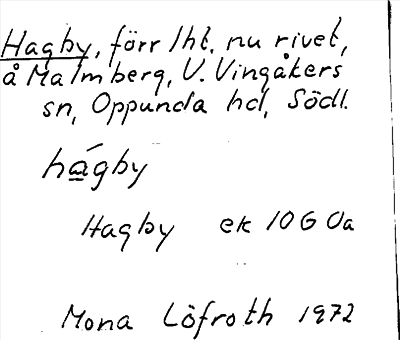 Hagby, förr lht. nu rivet,
å Malmberg, V. Vingåkers
sn, Oppunda hd, Södl.
hágby
Hagby ek 10G 0a
Mona Löfroth 1972